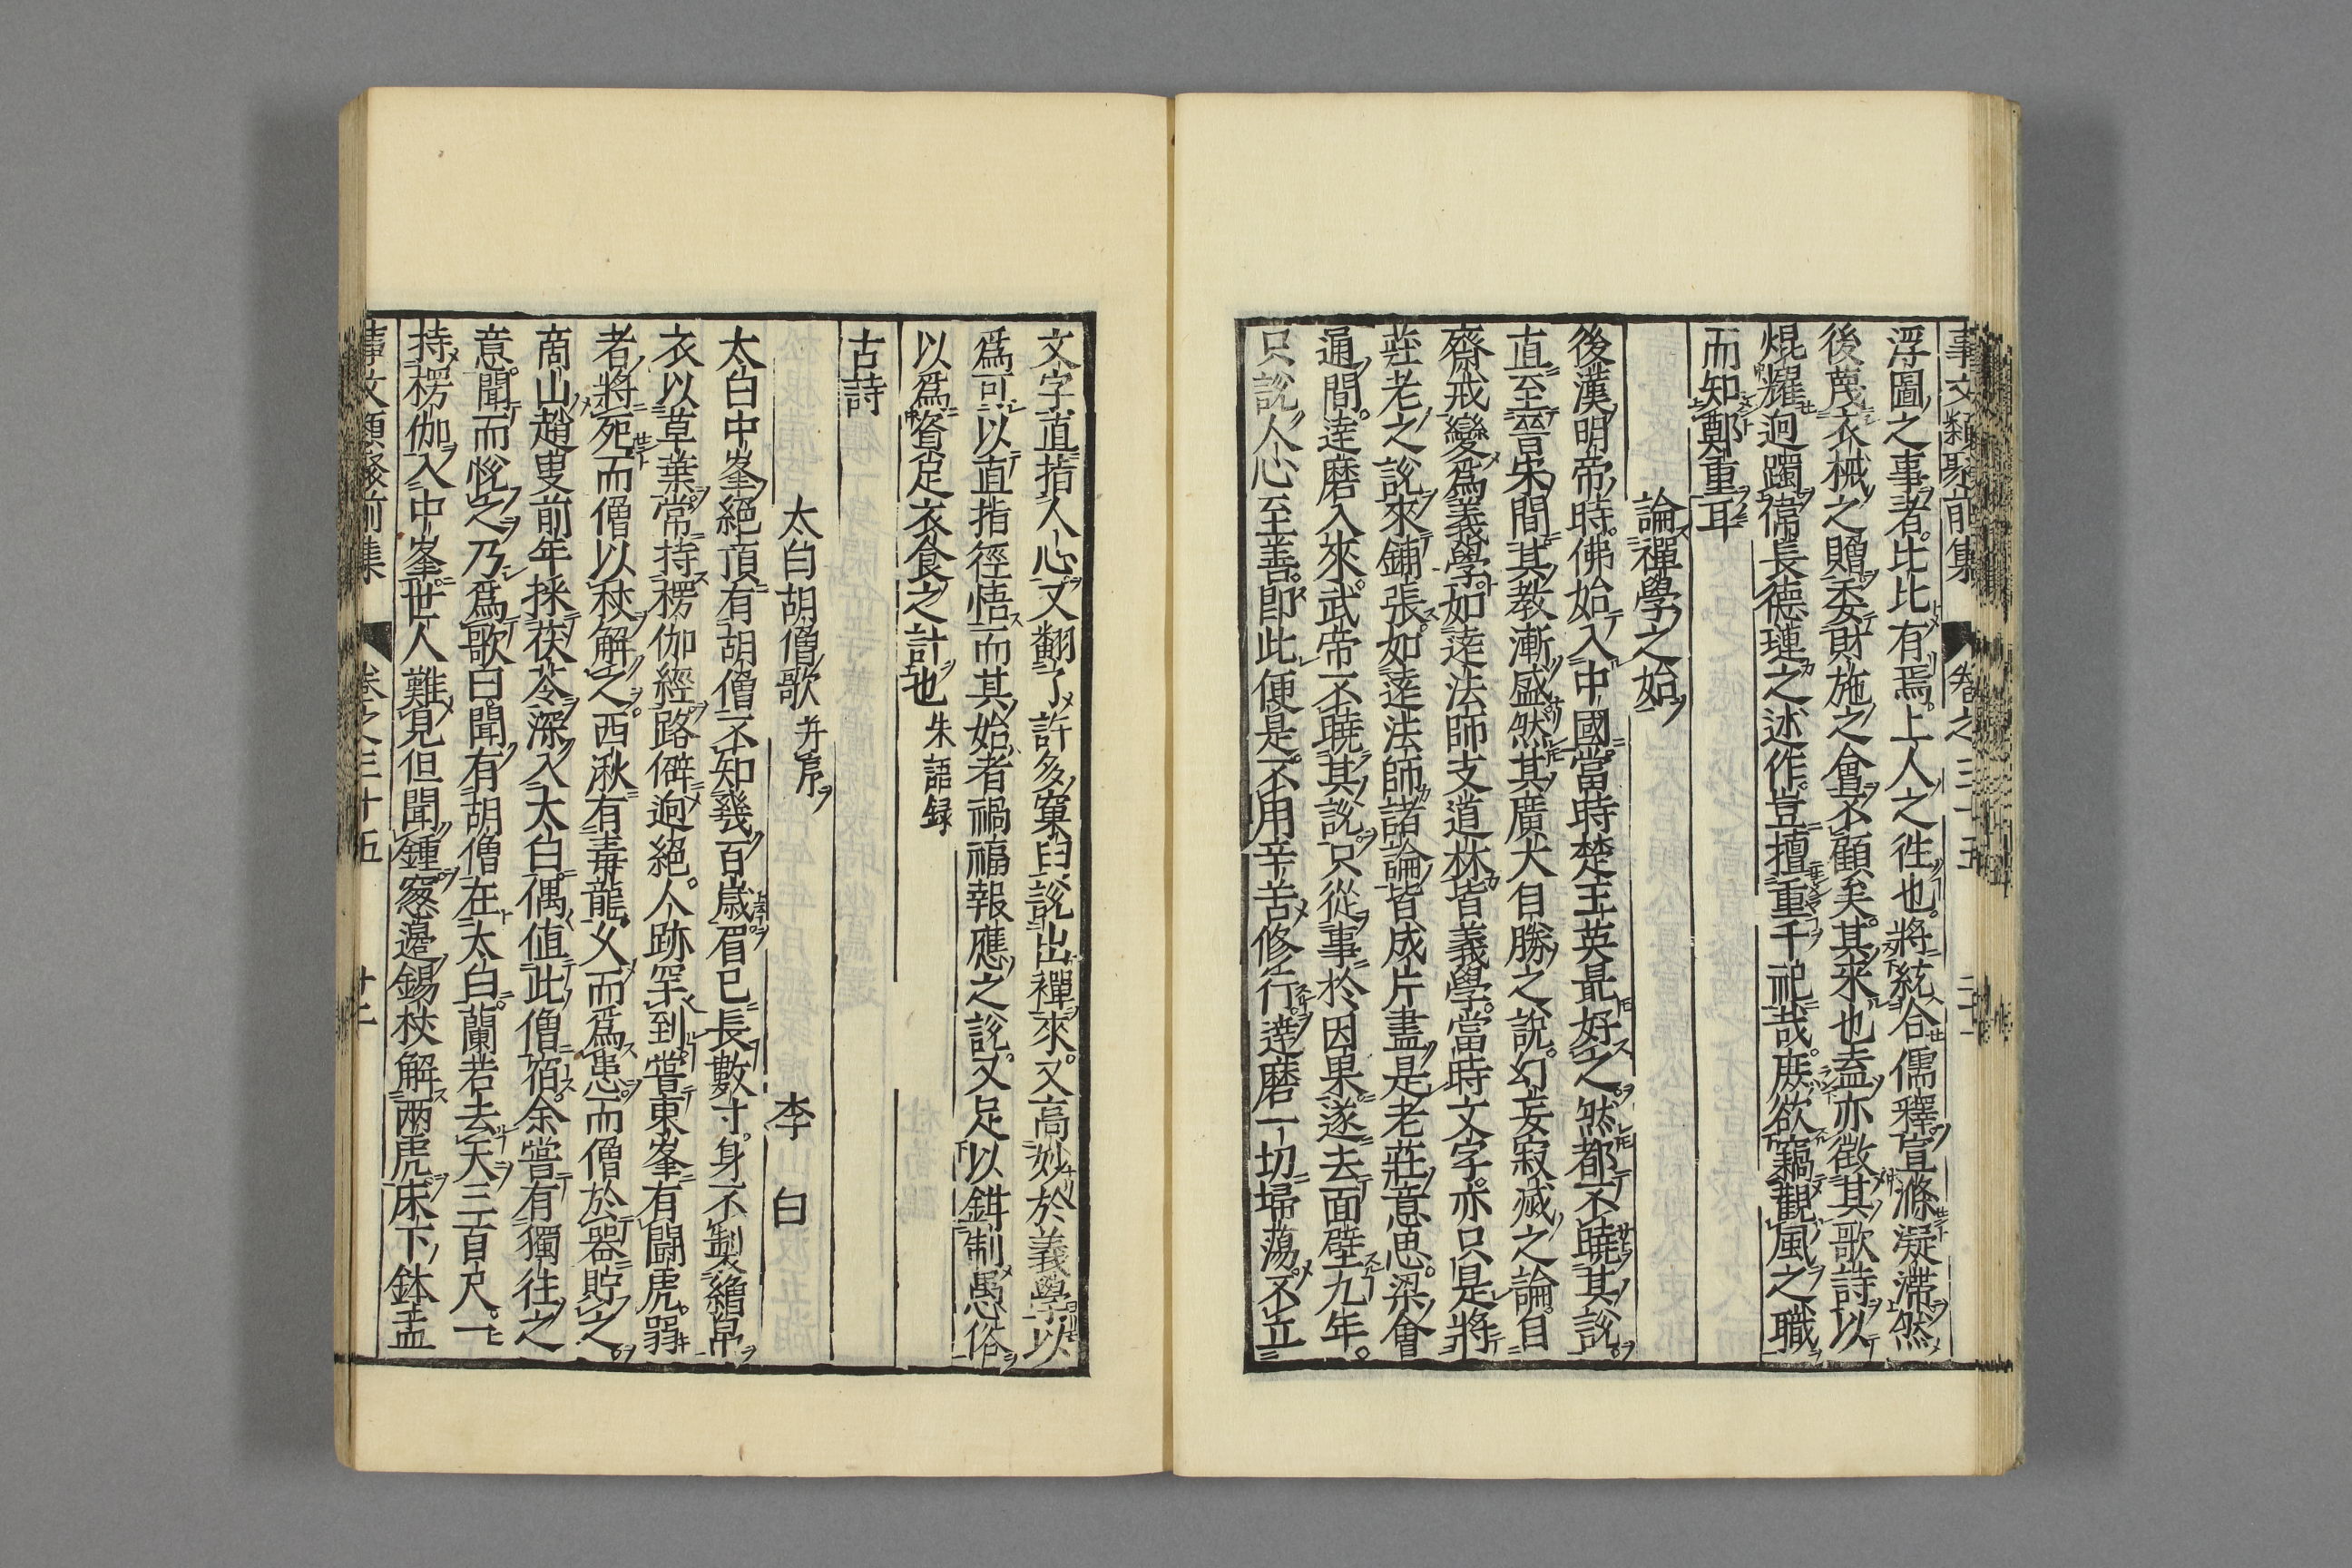 事文類聚前集 卷之三十五
浮圖之事者。比比有焉。上人之徃也。將統合儒釋宣滌凝滯然
後蔑衣裓之贈委財施之會不顧矣。其來也盍亦徵其歌詩以
焜耀迥躅偉長德璉之述作。豈擅重千祀哉。庶欲竊觀風之職
而知鄭重耳
論禪學之始
後漢明帝時。佛始入中國。當時楚王英最好之。然都不曉其說。
直至晉宋間。其教漸盛。然其廣大自勝之說。幻妄寂滅之論。自
齋戒變爲義學。如逹法師支道林皆義學。當時文字。亦只是將
莊老之說來鋪張。如逹法師諸論皆成片盡是老莊意思。梁會
通間。逹磨入來。武帝不曉其說。只從事於因果遂去面壁九年。
只說人心至善。卽此便是。不用辛苦修行。逹磨一切掃蕩。不立
文字直指人心又翻了許多窠臼說出禪來。又高妙於義學。以
爲可以直指徑悟而其始者禍福報應之說。又足以鉗制愚俗
以爲資足衣食之計也 朱語録
古詩
太白胡僧歌 并序 李白
太白中峯絕頂有胡僧不知幾百歲眉已長數寸。身不製繒帛
衣以草葉常持楞伽經路僻迥絕。人跡罕到。嘗東峯有鬪虎。弱
者將死而僧以杖解之。西湫有毒龍乆而爲患。而僧於器貯之。
商山趙叟前年採茯苓深入太白。偶值此僧宿。余嘗有獨徃之
意。聞而悅之乃爲歌曰聞有胡僧在太白。蘭若去天三百尺。一
持楞伽入中峯。世人難見但聞鍾。窓邊錫杖解兩虎床下鉢盂
事文類聚前集 卷之三十五 廿二